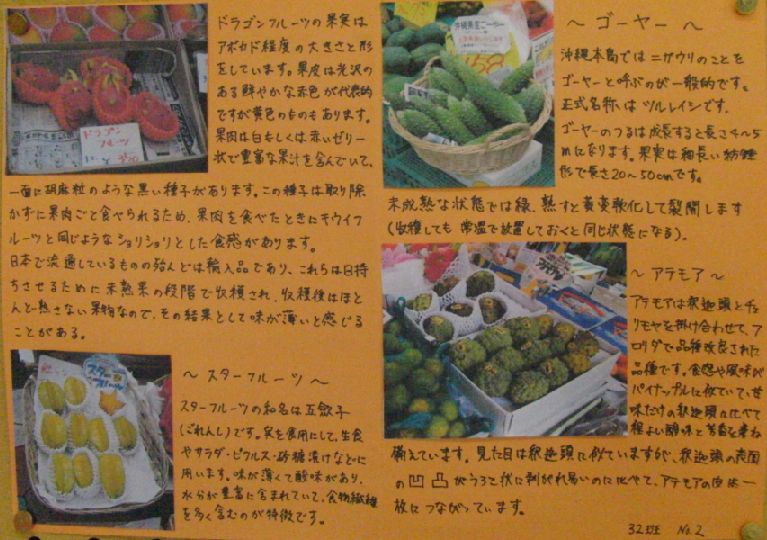 ドラゴンフルーツの果実は
アボカド程度の大きさと形
をしています。果皮は光沢の
ある鮮やかな赤色が代表的
ですが黄色のものもあります。
果肉は白もしくは赤いゼリー
状で豊富な果汁を含んでいて、
一面に胡麻粒のような黒い種子があります。この種子は取り除
かずに果肉ごと食べられるため、果肉を食べたときにキウイフ
ルーツと同じようなショリショリとした食感があります。
日本で流通しているものの殆んどは輸入品であり、これらは日持
ちさせるために未熟果の段階で収穫され、収穫後はほと
んど熟さない果物なので、その結果として味が薄いと感じる
ことがある。
ドラゴン
フルーツ
～スターフルーツ～
スターフルーツの和名は五歛子
(ごれんし)です。実を食用にして、生食
やサラダ・ピクルス・砂糖漬けなどに
用います。味が薄くて酸味があり、
水分が豊富に含まれていて、食物繊維
を多く含むのが特徴です。
スター
フルーツ
～ゴーヤー～
沖縄本島ではニガウリのことを
ゴーヤーと呼ぶのが一般的です。
正式名称はツルレイシです。
ゴーヤーのつるは成長すると長さ4～5
mになります。果実は細長い紡錘
形で長さ20～50cmです。
未成熟な状態では緑、熟すと黄変軟化して裂開します
(収穫しても常温で放置しておくと同じ状態になる)。
158
～アテモア～
アテモアは釈迦頭とチェ
リモヤを掛け合わせて、フ
ロリダで品種改良された
品種です。食感や風味が
パイナップルに似ていて甘
味だけの釈迦頭に比べて
程よい酸味と芳香を兼ね
備えています。見た目は釈迦頭に似ていますが、釈迦頭の表面
の凹凸がうろこ状に剥がれ易いのに比べて、アテモアの皮は一
枚につながっています。
32班 No.2